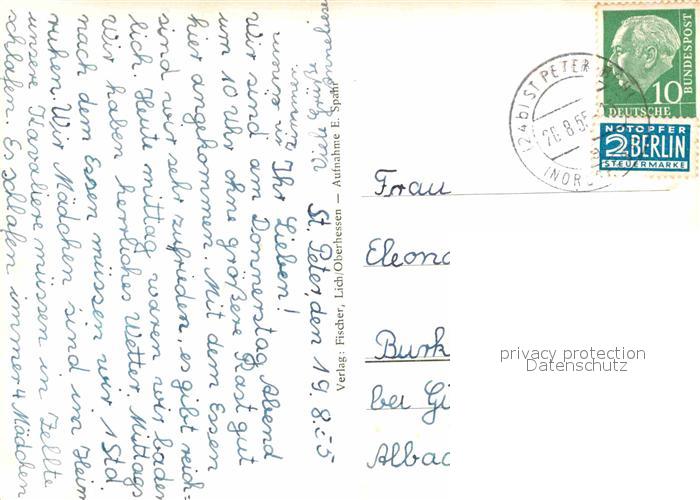 St. Peter, den 19.8.55
Ihr Lieben!
Wir sind am Donnerstag Abend
um 10 Uhr ohne größere Rast gut
hier angekommen. Mit dem Essen
sind wir sehr zufrieden, es gibt reich=
lich. Heute mittag waren wir baden
Wir haben herrliches Wetter. Mittags
nach dem Essen müssen wir 1 Std
ruhen. Wir Mädchen sind im Heim
unsere Kavaliere müssen in Zelte
schlafen. Es schlafen immer 4 Mädchen
Verlag: Fischer, Lich/Oberhessen — Aufnahme E. Spahr
(24b) ST PETER
26.8.55
(NORD
10
DEUTSCHE
BUNDESPOST
NOTOPFER
2 BERLIN
STEUERMARKE
Frau
Eleono
Burk
bei Gi
Albac
privacy protection
Datenschutz